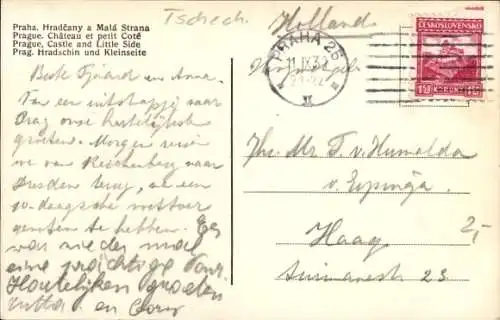 Praha. Hradčany a Malá Strana
Prague. Château et petit Coté
Prague, Castle and Little Side
Prag. Hradschin und Kleinseite
Tschech.
Holland
PRAHA 26
11.IX.32
ČESKOSLOVENSKO
Beste Tjaard en Anna.
Van een uitstapje naar
Praag onze hartelijkste
groeten. Morgen reizen
we van Reichenberg naar
Dresden terug, na een
10-daagsche
genoten te hebben. Het
was weder maal
eene prachtige Tour
Hartelijken groeten
en Cory
Mr T. v. Humalda
v. Eysinga
Haag
23
2,-